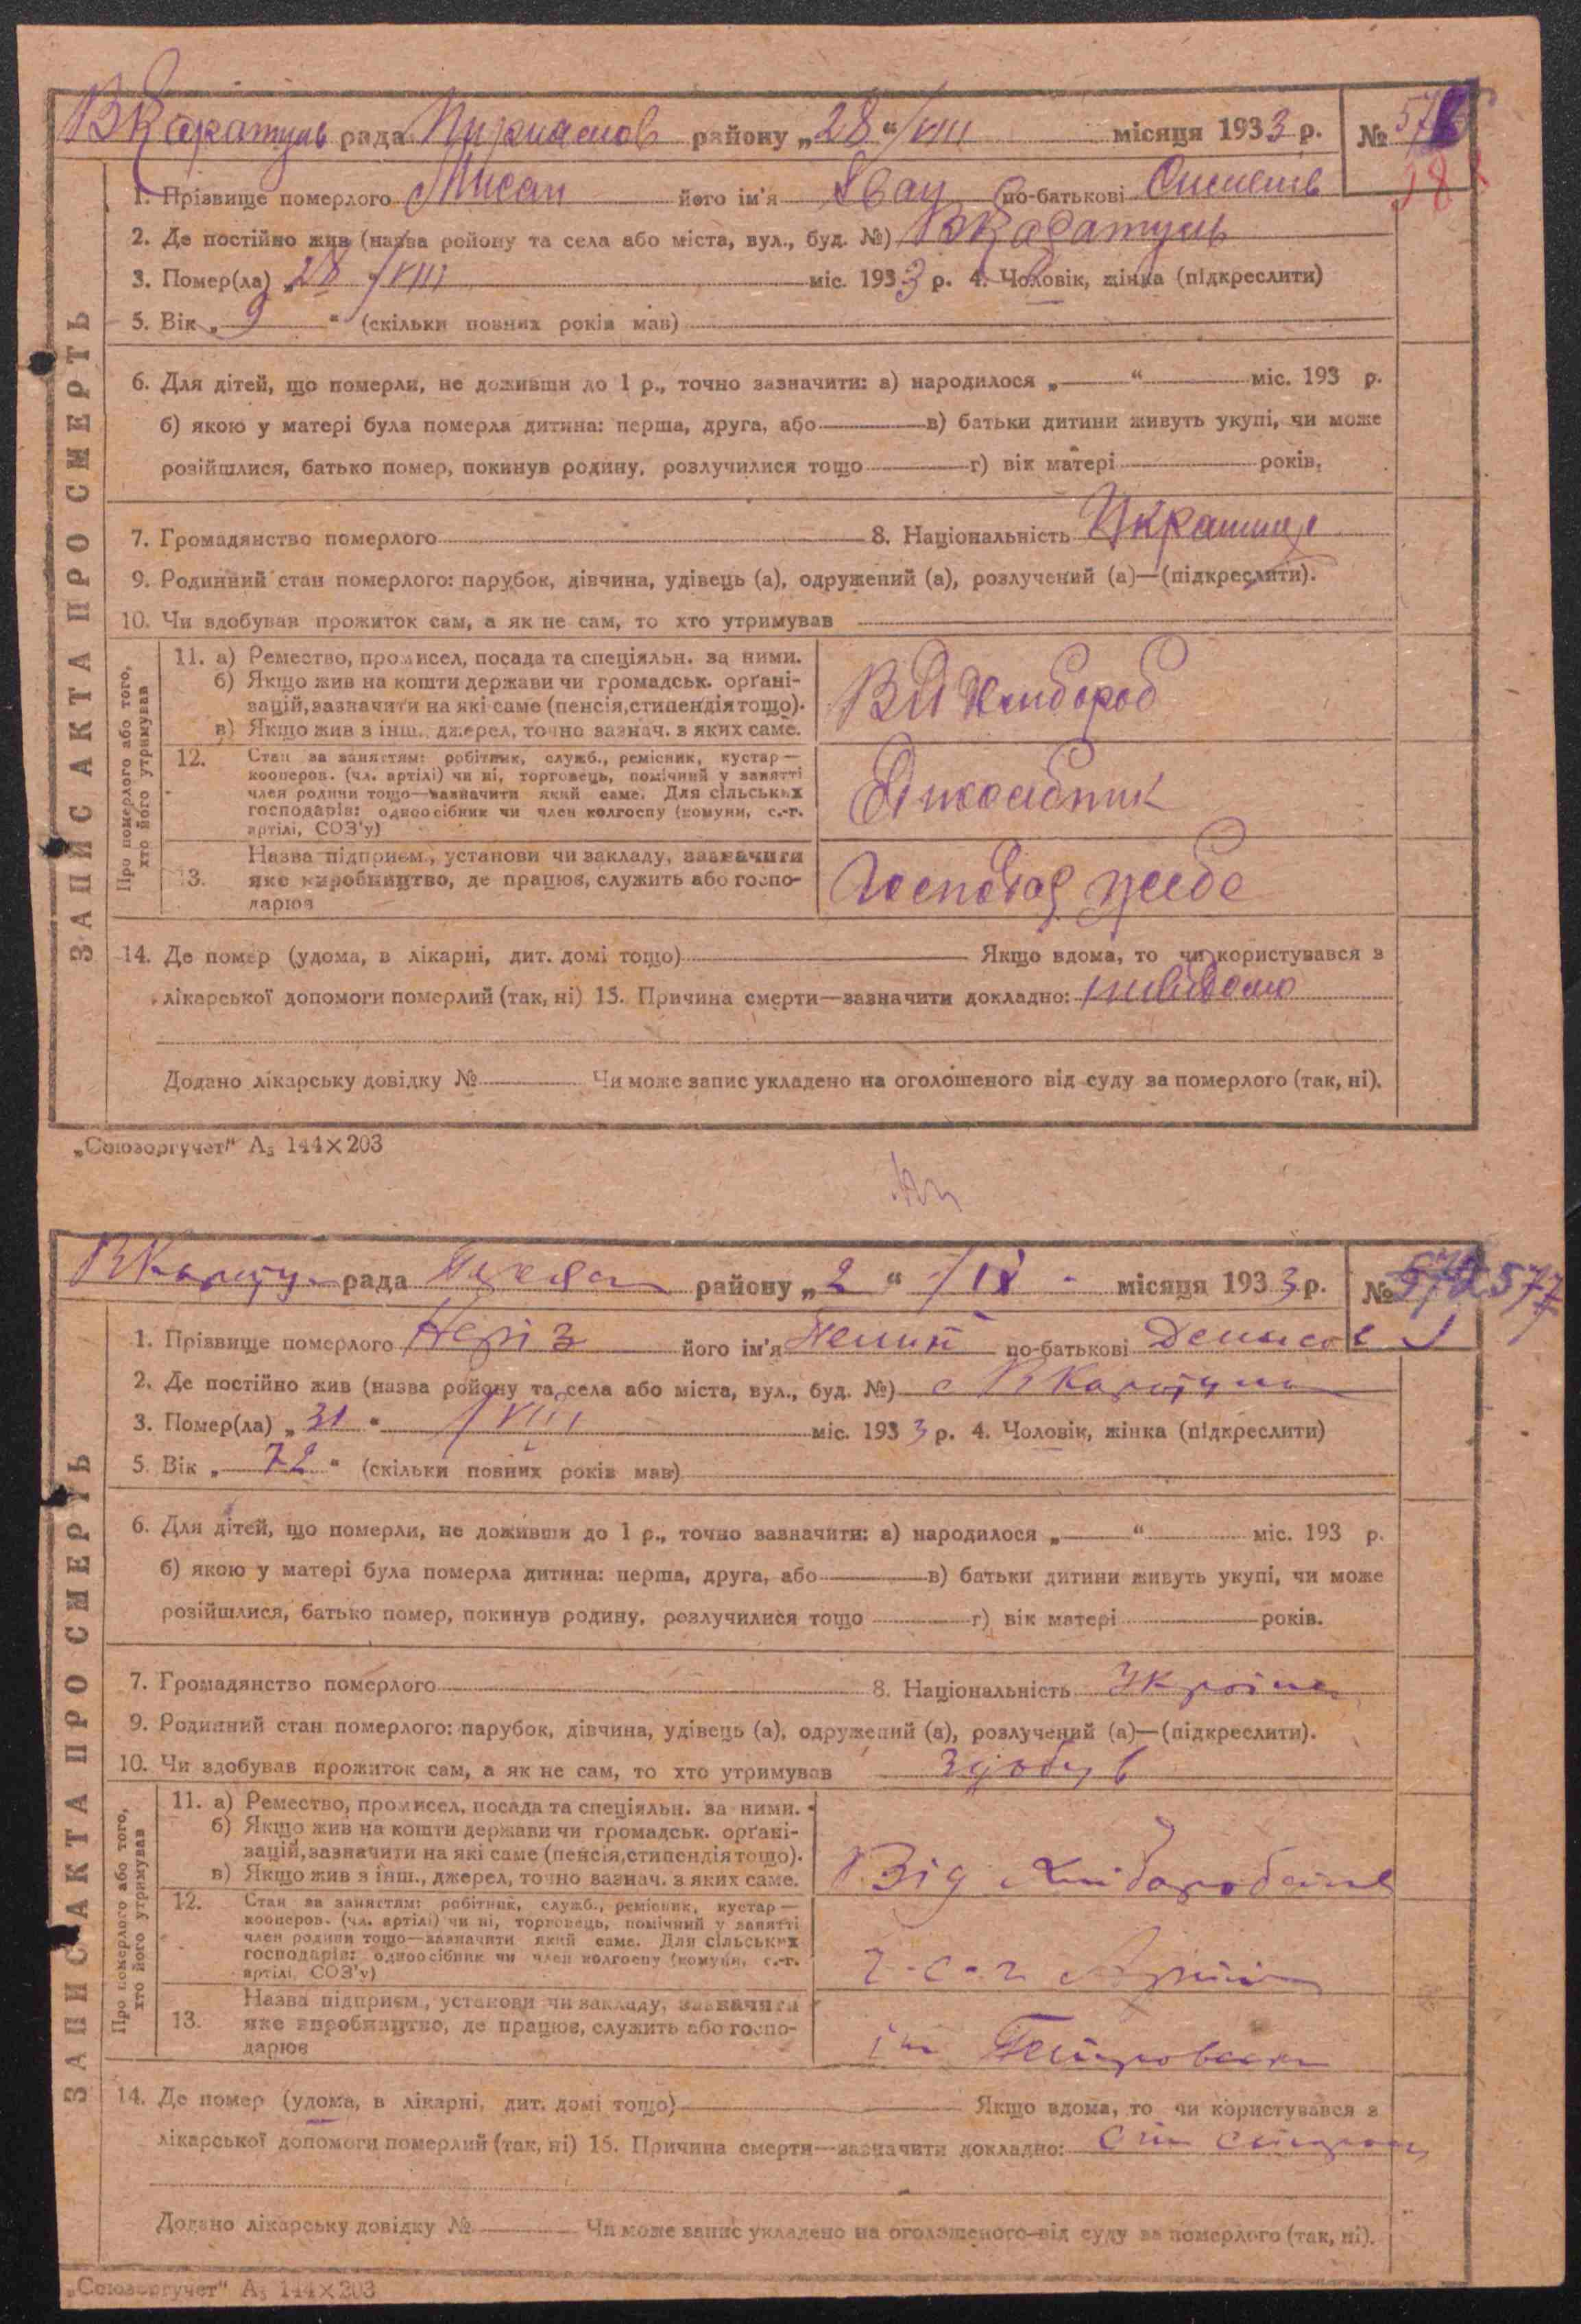 ВКаратуль рада району „28“ /VIII місяця 1933 р. №
1. Прізвище померлого Мисан його ім'я Іван по-батькові
2. Де постійно жив (назва ройону та села або міста, вул., буд. №) ВКаратуль
3. Помер(ла) „28“ /VIII міс. 1933 р. 4. Чоловік, жінка (підкреслити)
5. Вік „9“ (скільки повних років мав)
6. Для дітей, що померли, не доживши до 1 р., точно зазначити: а) народилося „ “ міс. 193 р.
б) якою у матері була померла дитина: перша, друга, або в) батьки дитини живуть укупі, чи може
розійшлися, батько помер, покинув родину, розлучилися тощо г) вік матері років,
7. Громадянство померлого 8. Національність
9. Родинний стан померлого: парубок, дівчина, удівець (а), одружений (а), розлучений (а)—(підкреслити).
10. Чи здобував прожиток сам, а як не сам, то хто утримував
Про померлого або того, хто його утримував
11. а) Ремество, промисел, посада та спеціяльн. за ними.
б) Якщо жив на кошти держави чи громадськ. орґані-
зацій, зазначити на які саме (пенсія, стипендія тощо).
в) Якщо жив з інш. джерел, точно зазнач. з яких саме.
Від хлібороб
12. Стан за заняттям: робітник, служб., ремісник, кустар—
кооперов. (чл. артілі) чи ні, торговець, помічний у занятті
член родини тощо—зазначити який саме. Для сільських
господарів: одноосібник чи член колгоспу (комуни, с.-г.
артілі, СОЗ'у)
13. Назва підприєм., установи чи закладу, зазначити
яке виробництво, де працює, служить або госпо-
дарює
14. Де помер (удома, в лікарні, дит. домі тощо) Якщо вдома, то чи користувався з
лікарської допомоги померлий (так, ні) 15. Причина смерти—зазначити докладно: невідомо
Додано лікарську довідку № Чи може запис укладено на оголошеного від суду за померлого (так, ні).
ЗАПИС АКТА ПРО СМЕРТЬ
„Союзоргучет“ А₅ 144×203
рада району „2“ /IX місяця 1933 р. № 577
1. Прізвище померлого його ім'я по-батькові Денисов
2. Де постійно жив (назва ройону та села або міста, вул., буд. №) с
3. Помер(ла) „31“ /VIII міс. 1933 р. 4. Чоловік, жінка (підкреслити)
5. Вік „72“ (скільки повних років мав)
6. Для дітей, що померли, не доживши до 1 р., точно зазначити: а) народилося „ “ міс. 193 р.
б) якою у матері була померла дитина: перша, друга, або в) батьки дитини живуть укупі, чи може
розійшлися, батько помер, покинув родину, розлучилися тощо г) вік матері років.
7. Громадянство померлого 8. Національність
9. Родинний стан померлого: парубок, дівчина, удівець (а), одружений (а), розлучений (а)—(підкреслити).
10. Чи здобував прожиток сам, а як не сам, то хто утримував
Про померлого або того, хто його утримував
11. а) Ремество, промисел, посада та спеціяльн. за ними.
б) Якщо жив на кошти держави чи громадськ. орґані-
зацій, зазначити на які саме (пенсія, стипендія тощо).
в) Якщо жив з інш., джерел, точно зазнач. з яких саме.
Від
12. Стан за заняттям: робітник, служб., ремісник, кустар—
кооперов. (чл. артілі) чи ні, торговець, помічний у занятті
член родини тощо—зазначити який саме. Для сільських
господарів: одноосібник чи член колгоспу (комуни, с.-г.
артілі, СОЗ'у)
13. Назва підприєм., установи чи закладу, зазначити
яке виробництво, де працює, служить або госпо-
дарює
14. Де помер (удома, в лікарні, дит. домі тощо) Якщо вдома, то чи користувався з
лікарської допомоги померлий (так, ні) 15. Причина смерти—зазначити докладно:
Додано лікарську довідку № Чи може запис укладено на оголошеного від суду за померлого (так, ні).
ЗАПИС АКТА ПРО СМЕРТЬ
„Союзоргучет“ А₅ 144×203